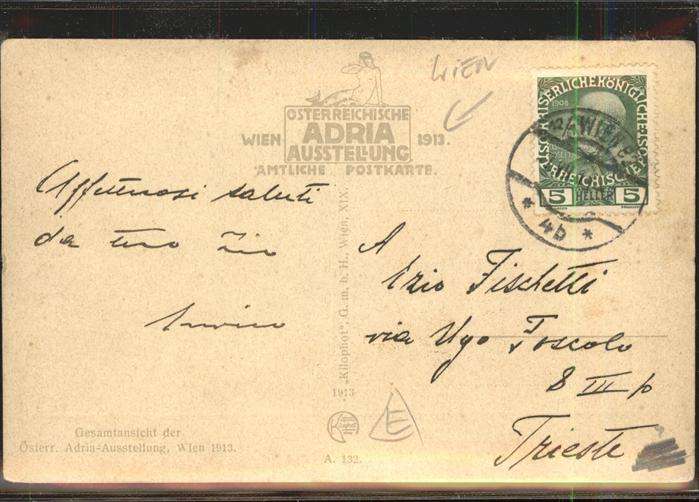 WIEN
ÖSTERREICHISCHE
ADRIA
AUSSTELLUNG
WIEN 1913.
AMTLICHE POSTKARTE.
KAISERLICHE KÖNIGLICHE
1908
5 HELLER 5
WIEN
* 4b *
Affettuosi saluti
da tuo Zio
Enrico
A
Ezio Fischetti
via Ugo Foscolo
8 III p
Trieste
"Kilophot", G. m. b. H., Wien, XIX.
1913
E
Gesamtansicht der
Österr. Adria-Ausstellung, Wien 1913.
A. 132.